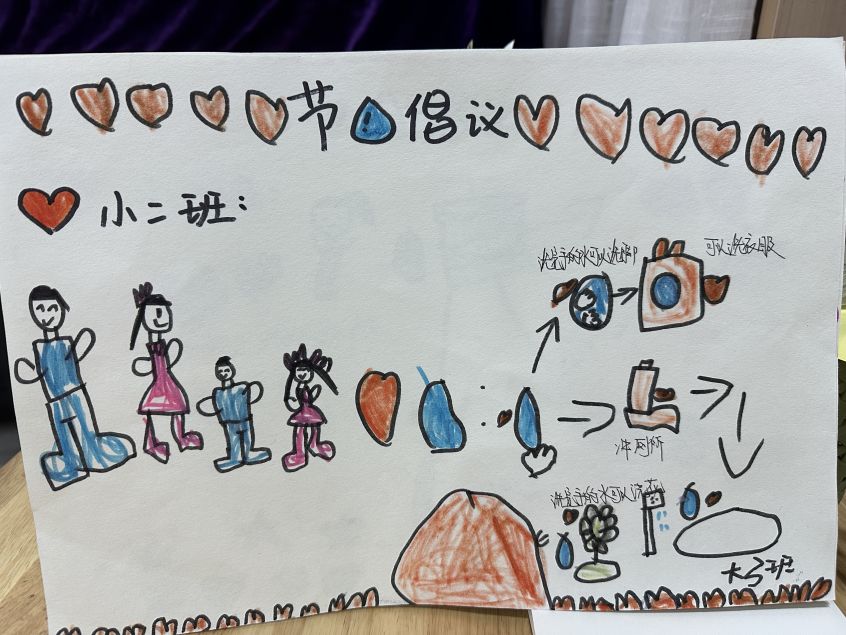 节 倡议
小二班：
洗手的水可以洗脚
可以洗衣服
冲厕所
洗手的水可以浇菜
大3班